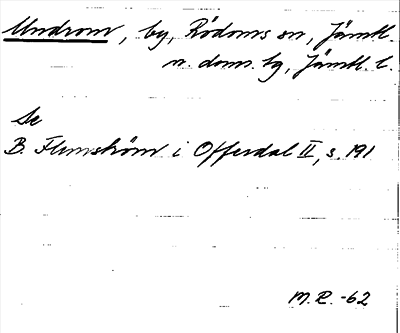 Undrom, by, Rödöns sn, Jämtl.
n. doms. by, Jämtl. l.
Se
B. Flemström i Offerdal II, s. 191
M.R. -62